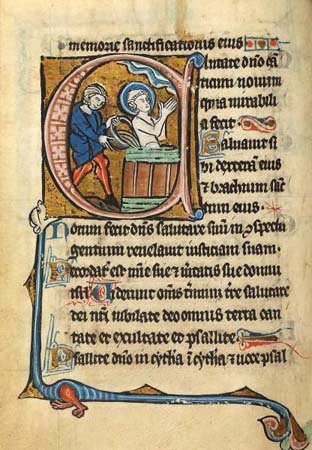 memorie sanctificationis eius
Cantate dno cã
ticum nouum
quia mirabili
a fecit
Saluauit si
bi dextera eius
et brachium sanc
tum eius
Notum fecit dns salutare suũ in ꝯspectu
gentium reuelauit iusticiam suam
Recordat' est mie sue et ueritatis sue domui
isrl Viderunt oms termini tre salutare
dei nri iubilate deo omnis terra can
tate et exultate et psallite
Psallite dno in cytha in cytha et uoce psal